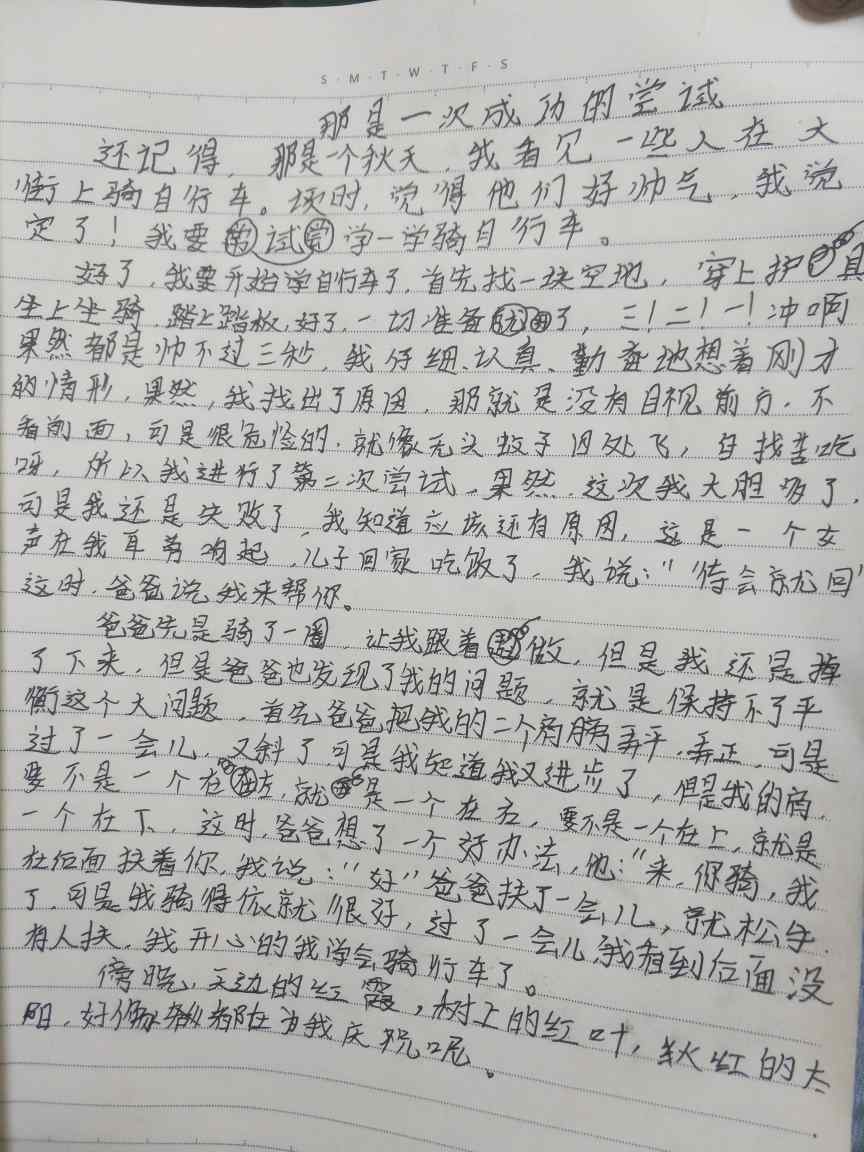 S·M·T·W·T·F·S
那是一次成功的尝试
还记得，那是一个秋天，我看见一些人在大
街上骑自行车。顿时，觉得他们好帅气，我说
定了！我要尝试学一学骑自行车。
好了，我要开始学自行车了，首先找一块空地，穿上护具
坐上坐骑，踏上踏板，好了，一切准备就绪了，三！二！一！冲啊
果然都是帅不过三秒，我仔细、认真、勤奋地想着刚才
的情形，果然，我找出了原因，那就是没有目视前方，不
看前面，可是很危险的，就像无头蚊子四处飞，自找苦吃
呀，所以我进行了第二次尝试，果然，这次我大胆多了，
可是我还是失败了，我知道应该还有原因，这是一个女
声在我耳旁响起，儿子回家吃饭了，我说：“待会就回”
这时，爸爸说我来帮你。
爸爸先是骑了一圈，让我跟着做，但是我还是掉
了下来，但是爸爸也发现了我的问题，就是保持不了平
衡这个大问题，首先爸爸把我的二个肩膀弄平，弄正，可是
过了一会儿，又斜了，可是我知道我又进步了，但是我的肩，
要不是一个在左，就是一个在右，要不是一个在上，就是
一个在下，这时，爸爸想了一个好办法，他：“来，你骑，我
在后面扶着你，我说：“好”爸爸扶了一会儿，就松手
了，可是我骑得依就很好，过了一会儿，我看到后面没
有人扶，我开心的我学会骑行车了。
傍晚，天边的红霞，树上的红叶，火红的太
阳，好像都在为我庆祝呢。